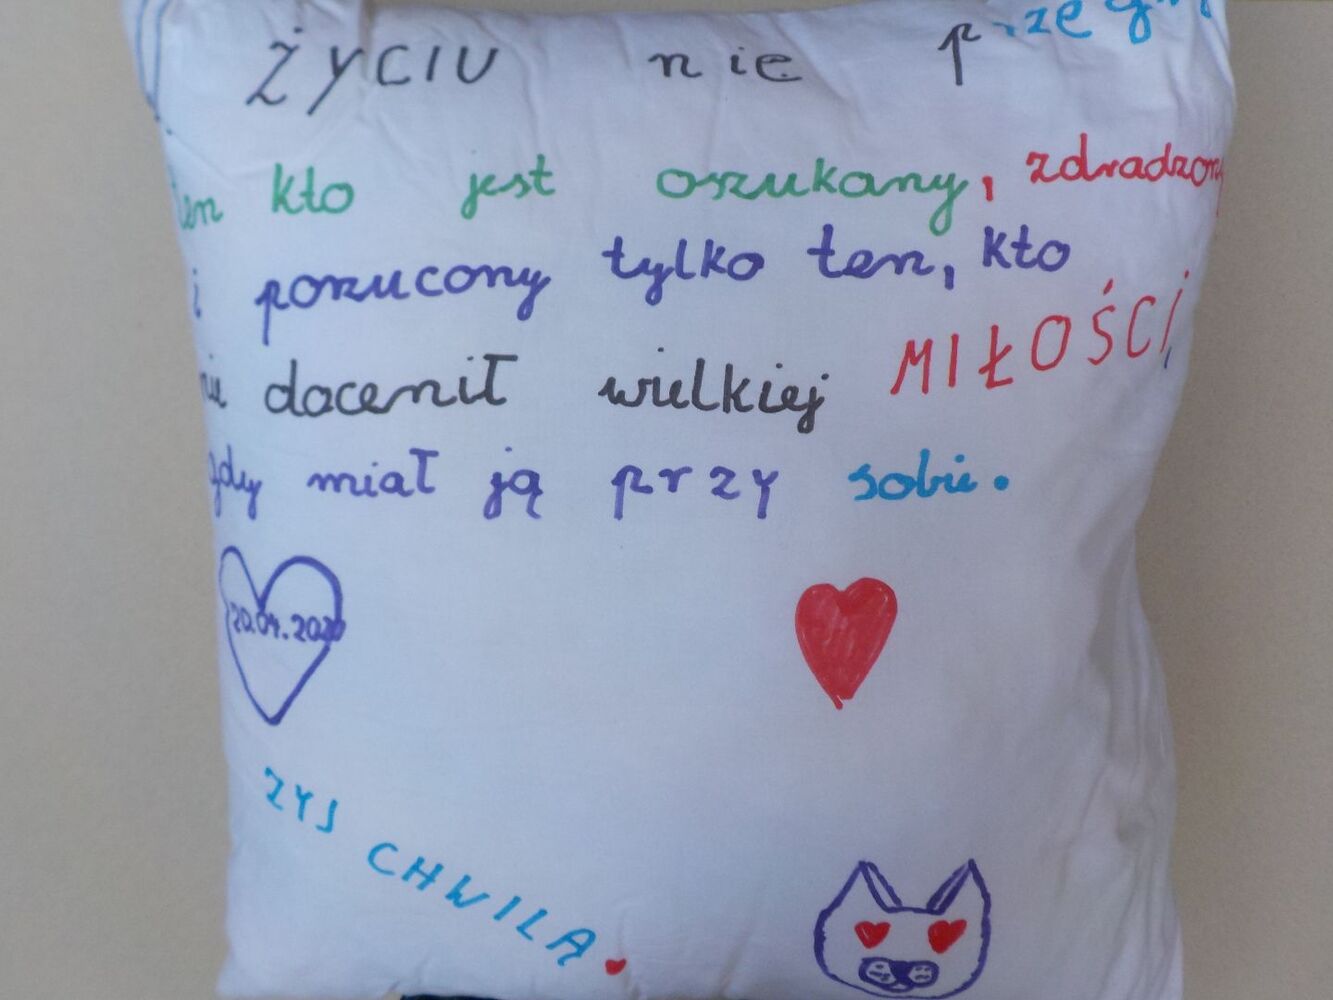 ŻYCIU nie
ten kto jest oszukany, zdradzony
i porzucony tylko ten, kto
nie docenił wielkiej MIŁOŚCI,
gdy miał ją przy sobie.
20.04.2020
ZYJ CHWILA